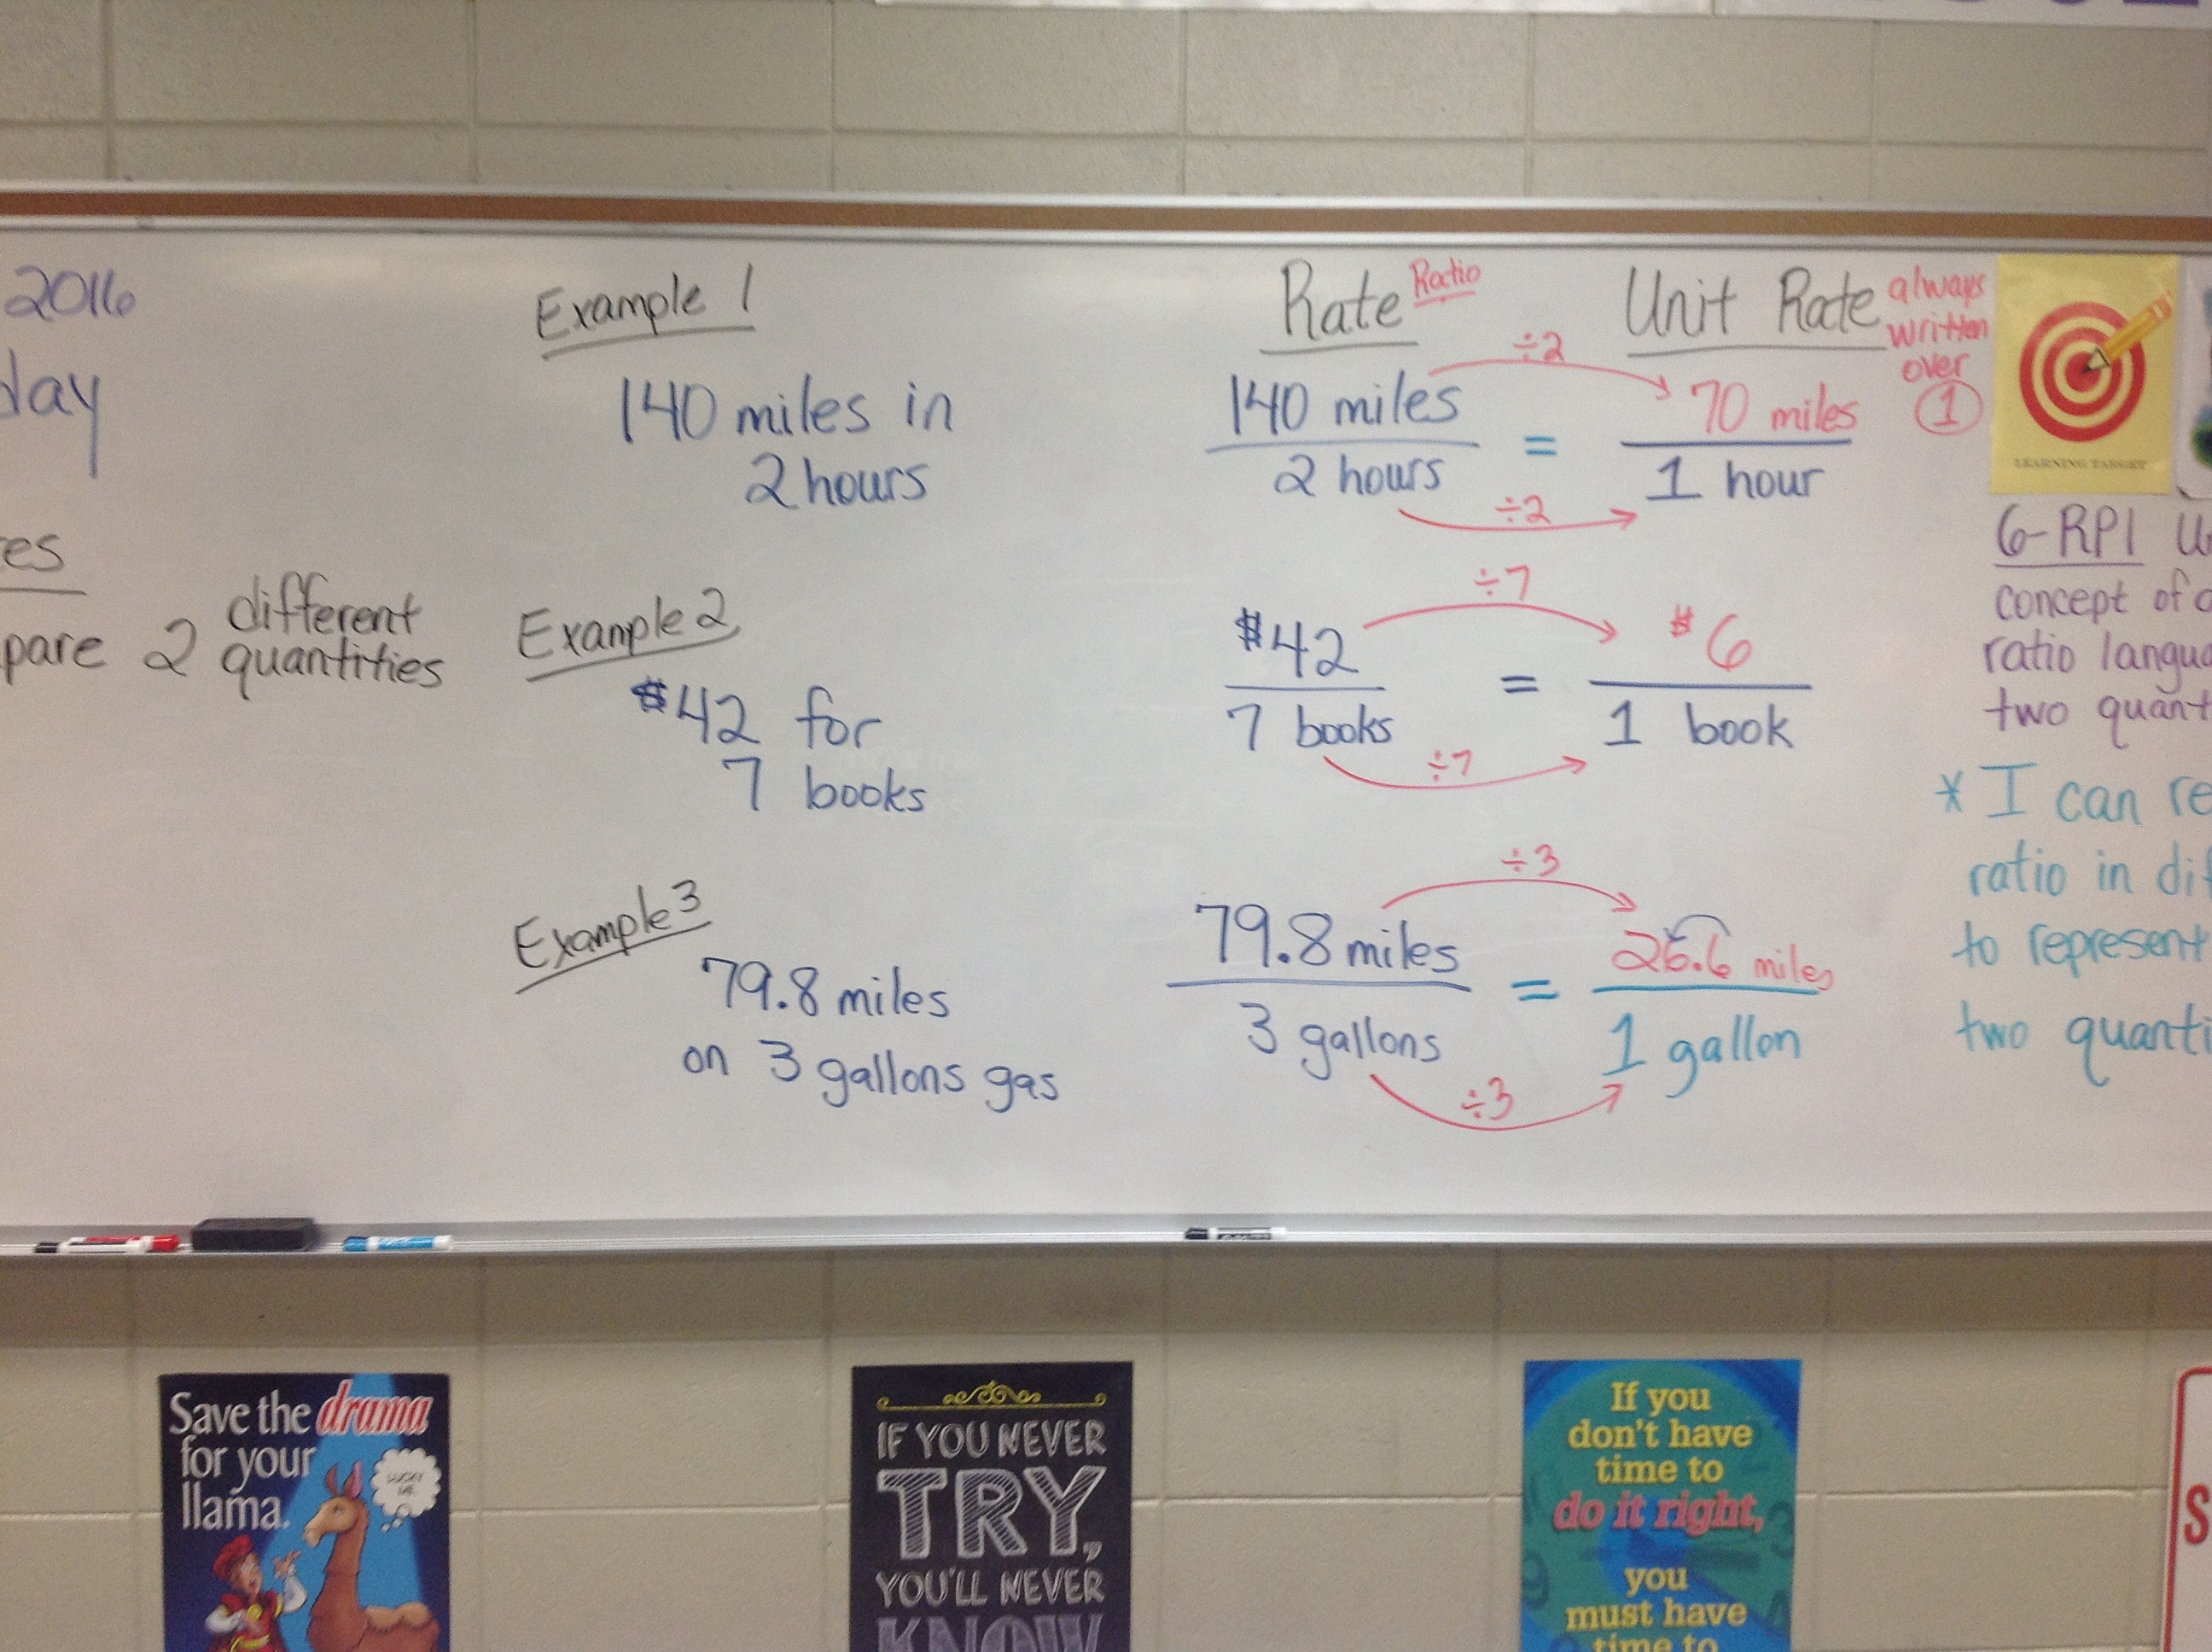 2016
day
es
pare 2 different
quantities
Example 1
140 miles in
2 hours
Example 2
$42 for
7 books
Example 3
79.8 miles
on 3 gallons gas
Rate Ratio
÷2
140 miles
2 hours
÷2
=
Unit Rate always
written
over
1
70 miles
1 hour
÷7
$42
7 books
÷7
=
$6
1 book
÷3
79.8 miles
3 gallons
÷3
=
26.6 miles
1 gallon
LEARNING TARGET
6-RP1 U
concept of a
ratio langua
two quant
* I can re
ratio in dif
to represent
two quanti
Save the drama
for your
llama.
LUCKY
ME
IF YOU NEVER
TRY,
YOU'LL NEVER
KNOW
If you
don't have
time to
do it right,
you
must have
time to
S